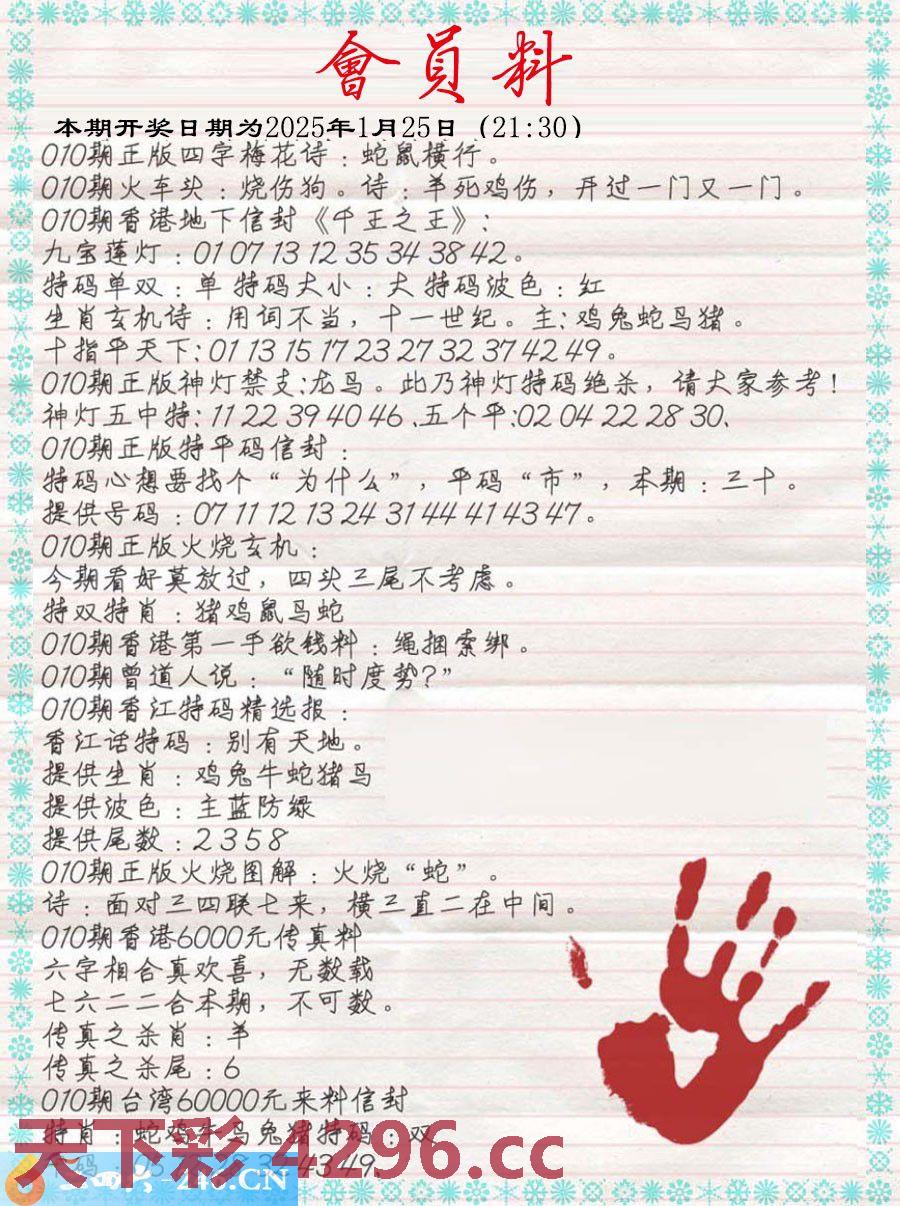 會員料
本期开奖日期为2025年1月25日（21:30）
010期正版四字梅花诗：蛇鼠横行。
010期火车头：烧伤狗。诗：羊死鸡伤，开过一门又一门。
010期香港地下信封《千王之王》：
九宝莲灯：01 07 13 12 35 34 38 42。
特码单双：单 特码大小：大 特码波色：红
生肖玄机诗：用词不当，十一世纪。主：鸡兔蛇马猪。
十指平天下：01 13 15 17 23 27 32 37 42 49。
010期正版神灯禁支：龙马。此乃神灯特码绝杀，请大家参考！
神灯五中特：11 22 39 40 46、五个平：02 04 22 28 30、
010期正版特平码信封：
特码心想要找个“为什么”，平码“市”，本期：三十。
提供号码：07 11 12 13 24 31 44 41 43 47。
010期正版火烧玄机：
今期看好莫放过，四头三尾不考虑。
特双特肖：猪鸡鼠马蛇
010期香港第一手欲钱料：绳捆索绑。
010期曾道人说：“随时度势？”
010期香江特码精选报：
香江话特码：别有天地。
提供生肖：鸡兔牛蛇猪马
提供波色：主蓝防绿
提供尾数：2 3 5 8
010期正版火烧图解：火烧“蛇”。
诗：面对三四联七来，横三直二在中间。
010期香港6000元传真料
六字相合真欢喜，无数载
七六二二合本期，不可数。
传真之杀肖：羊
传真之杀尾：6
010期台湾60000元来料信封
特肖：蛇鸡牛马兔猪特码：双
43 49、
天下彩 4296.cc
246.CN